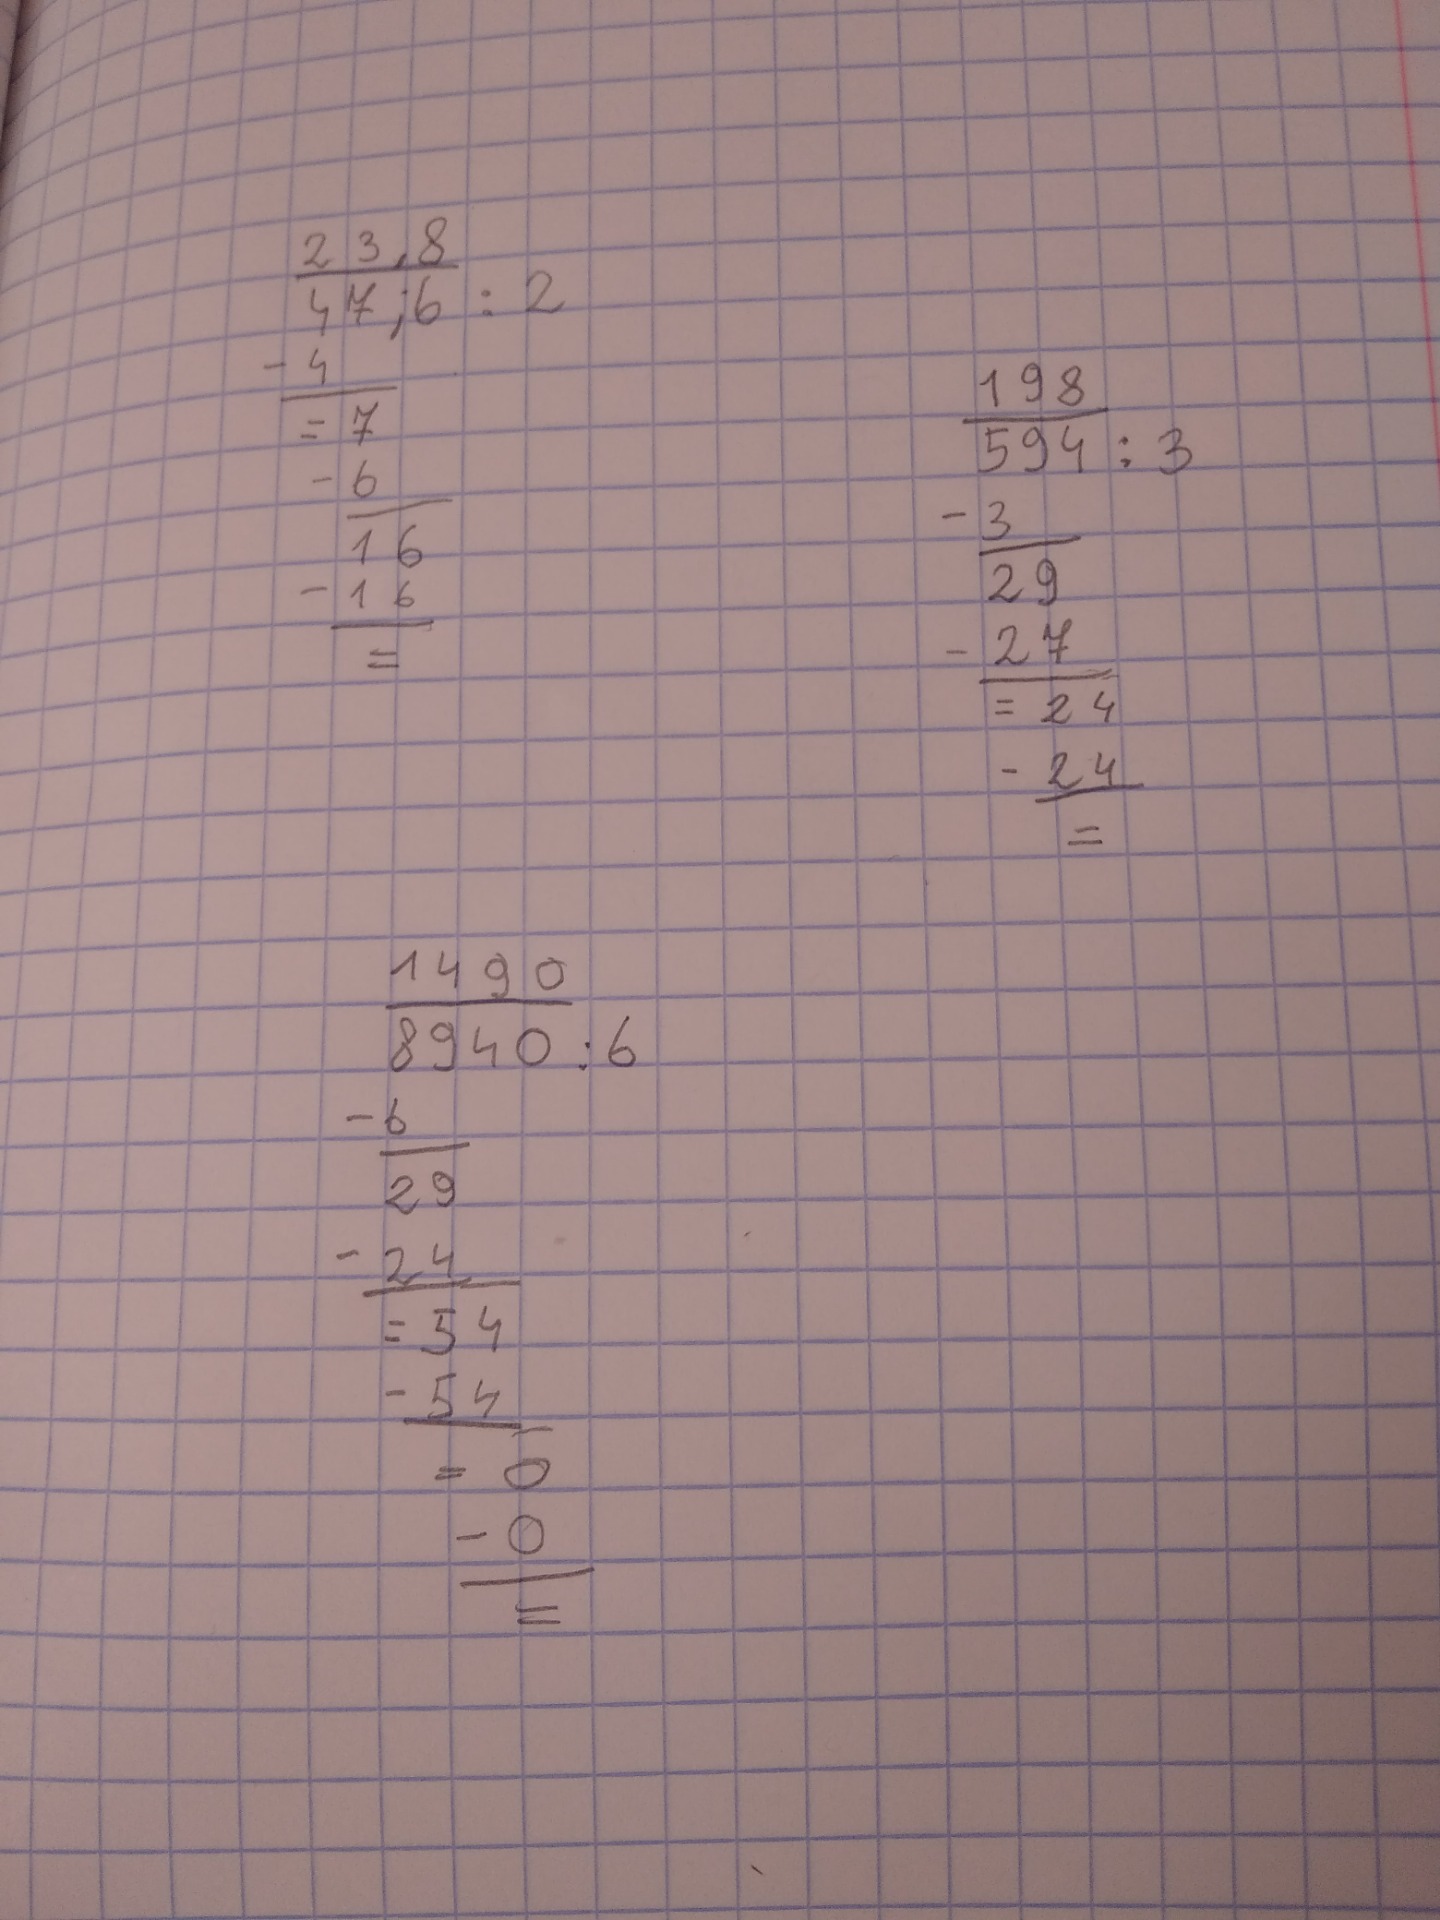 23,8
47,6 : 2
- 4
= 7
- 6
16
- 16
=
198
594 : 3
- 3
29
- 27
= 24
- 24
=
1490
8940 : 6
- 6
29
- 24
= 54
- 54
= 0
- 0
=